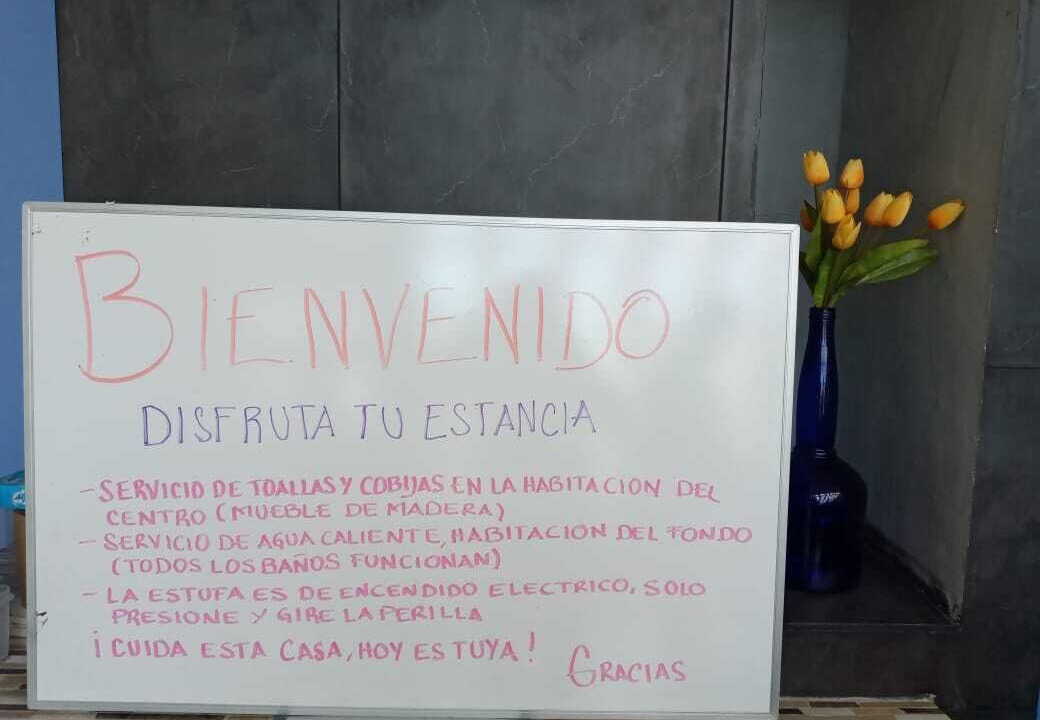 BIENVENIDO
DISFRUTA TU ESTANCIA
- SERVICIO DE TOALLAS Y COBIJAS EN LA HABITACION DEL
CENTRO (MUEBLE DE MADERA)
- SERVICIO DE AGUA CALIENTE, HABITACION DEL FONDO
(TODOS LOS BAÑOS FUNCIONAN)
- LA ESTUFA ES DE ENCENDIDO ELECTRICO, SOLO
PRESIONE Y GIRE LA PERILLA
¡CUIDA ESTA CASA, HOY ES TUYA!
GRACIAS